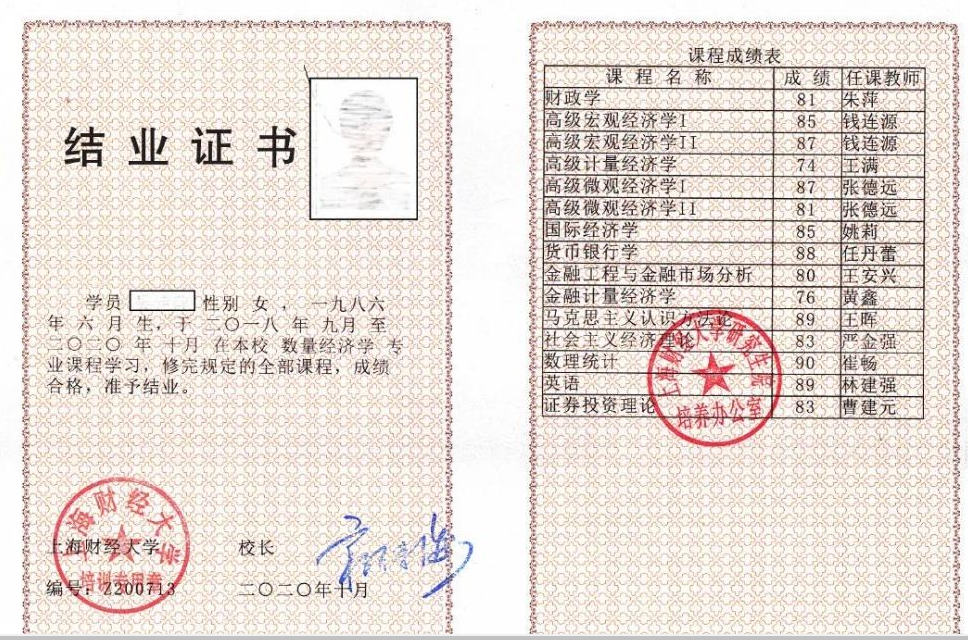 结业证书
学员 性别 女 ， 一九八六
年 六 月 生，于 二〇一八 年 九月 至
二〇二〇 年 十月 在本校 数量经济学 专
业课程学习，修完规定的全部课程，成绩
合格，准予结业。
上海财经大学
培训专用章
上海财经大学 校长
编号：Z200713 二〇二〇年十月
课程成绩表
课程名称 成绩 任课教师
财政学 81 朱萍
高级宏观经济学I 85 钱连源
高级宏观经济学II 87 钱连源
高级计量经济学 74 王满
高级微观经济学I 87 张德远
高级微观经济学II 81 张德远
国际经济学 85 姚莉
货币银行学 88 任丹蕾
金融工程与金融市场分析 80 王安兴
金融计量经济学 76 黄鑫
马克思主义认识方法论 89 王晖
社会主义经济理论 83 严金强
数理统计 90 崔畅
英语 89 林建强
证券投资理论 83 曹建元
上海财经大学研究生院
培养办公室